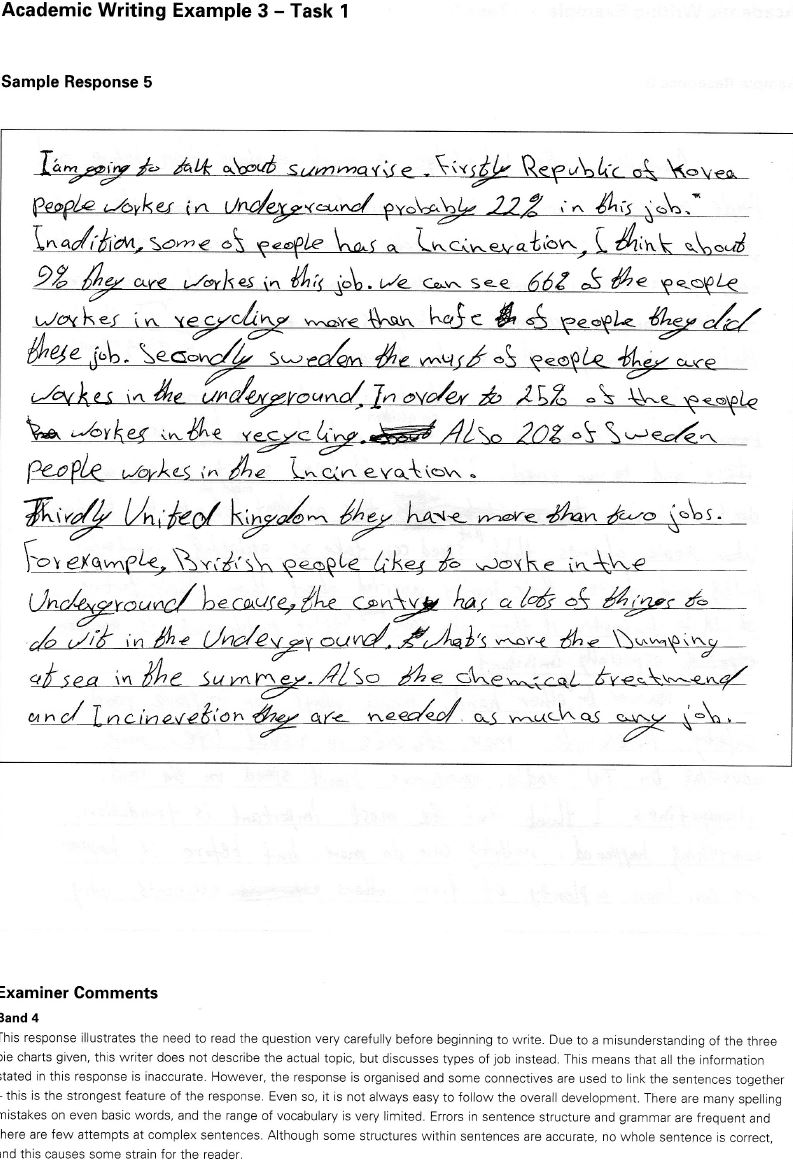 Academic Writing Example 3 – Task 1
Sample Response 5
I'am going to talk about summarise. Firstly Republic of Korea
people workes in Underground probably 22% in this job."
Inadition, some of people has a Incineration, I think about
9% they are workes in this job. We can see 66% of the people
workes in recycling more than hafe of people they did
these job. Secondly sweden the must of people they are
workes in the underground. In order to 25% of the people
workes in the recycling. Also 20% of Sweden
people workes in the Incineration.
Thirdly United kingdom they have more than two jobs.
For example, British people likes to worke in the
Underground because, the contry has a lots of things to
do wit in the Underground. What's more the Dumping
at sea in the summer. Also the chemical treatmend
and Incineretion they are needed as much as any job.
Examiner Comments
Band 4
This response illustrates the need to read the question very carefully before beginning to write. Due to a misunderstanding of the three
pie charts given, this writer does not describe the actual topic, but discusses types of job instead. This means that all the information
stated in this response is inaccurate. However, the response is organised and some connectives are used to link the sentences together
- this is the strongest feature of the response. Even so, it is not always easy to follow the overall development. There are many spelling
mistakes on even basic words, and the range of vocabulary is very limited. Errors in sentence structure and grammar are frequent and
there are few attempts at complex sentences. Although some structures within sentences are accurate, no whole sentence is correct,
and this causes some strain for the reader.